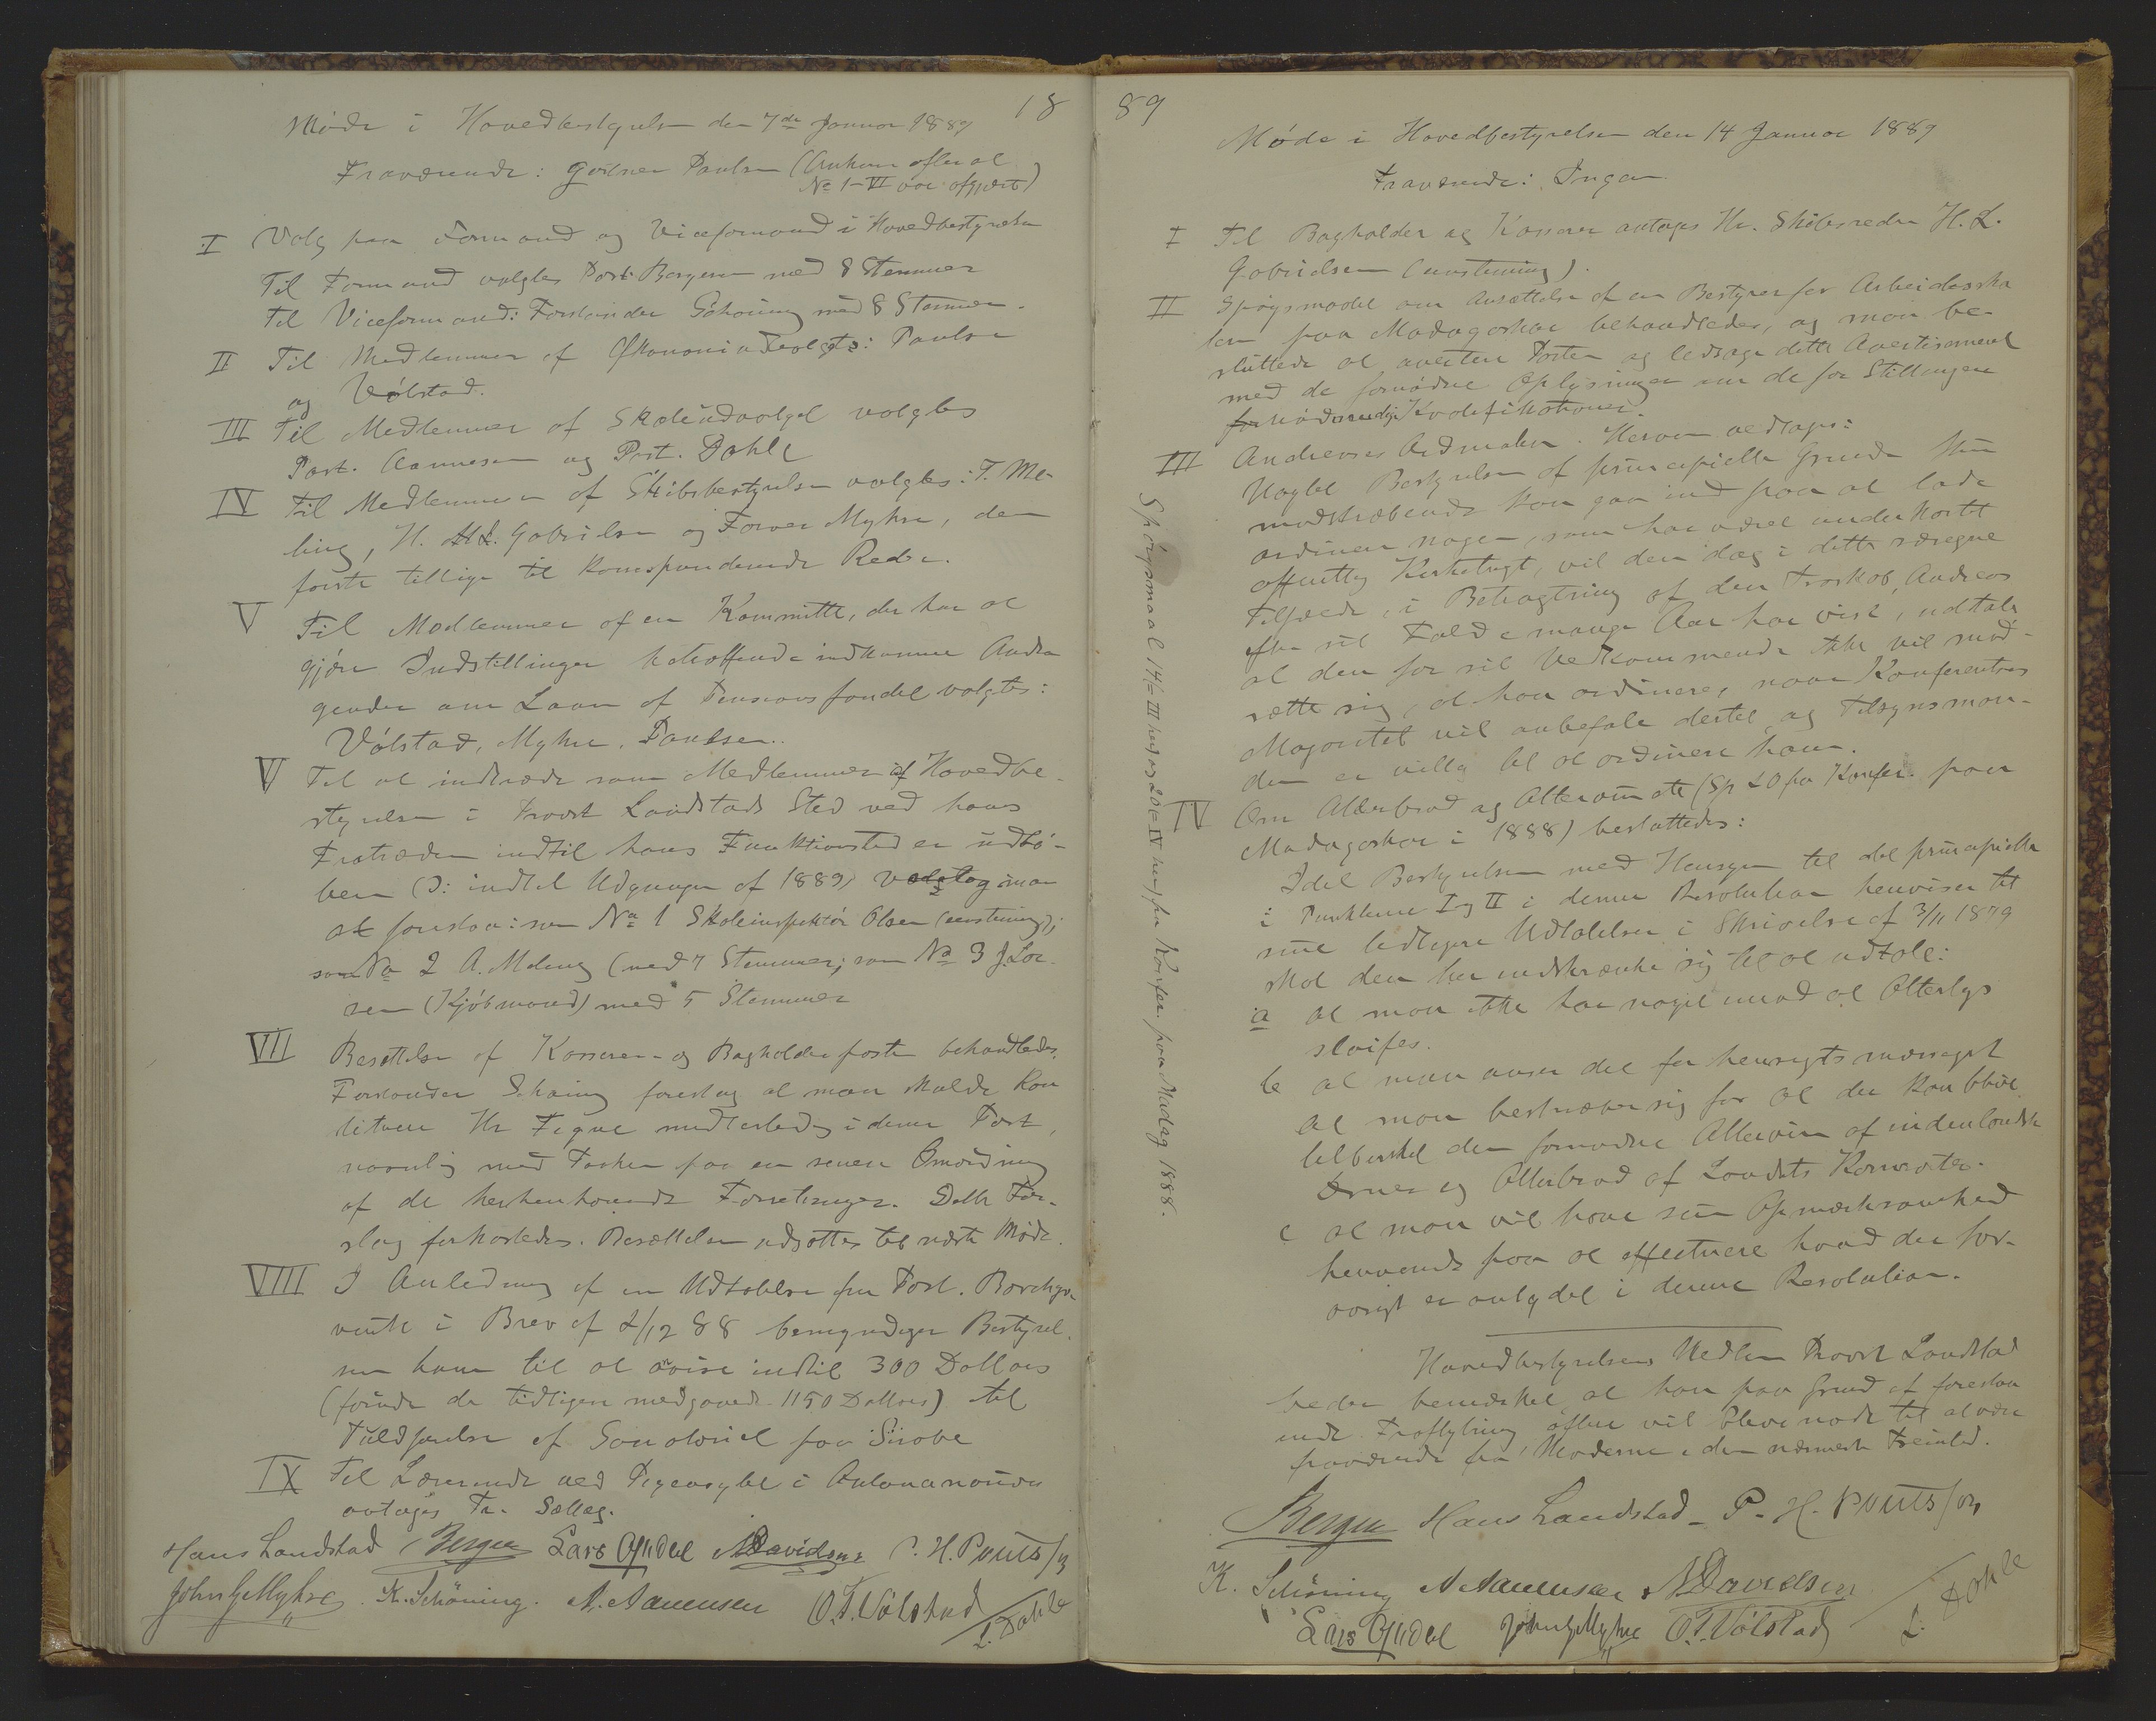 18
Møde i Hovedbestyrelsen den 7de Januar 1889
Fraværende: Gartner Paulsen (Ankom efter at
No I-VI var afgjort)
I Valg paa Formand og Viceformand i Hovedbestyrelsen
Til Formand valgtes Past. Borgen med 8 Stemmer
Til Viceformand: Forstander Schøning med 8 Stemmer.
II Til Medlemmer af Økonomiudvalgte: Paulsen
og Vølstad.
III Til Medlemmer af Skoleudvalget valgtes
Past. Aanensen og Past. Dahle
IV Til Medlemmer af Skibsbestyrelsen valgtes: T. Me-
ling, H. L. Gabrielsen og Farver Myhre, den
første tillige til korresponderende Reder.
V Til Medlemmer af en Kommitte, der har at
gjøre Indstillinger betræffende indkomne Andra
gender om Laan af Pensionsfondet valgtes:
Vølstad, Myhre, Paulsen.
VI Til at indtræde som Medlemmer af Hovedbe-
styrelsen i Provst Landstads Sted ved hans
Fratræden indtil hans Funktionstid er udlø-
ben (ɔ: indtil Udgangen af 1889) vedtog man
at foreslaa: som No 1 Skoleinspektør Olsen (eenstemmig);
som No 2 A. Meling (med 7 Stemmer; som No 3 J. Lar-
sen (Kjøbmand) med 5 Stemmer
VII Besættelse af Kasserer- og Bogholderposten behandledes.
Forstander Schøning foreslog at man skulde kon
stituere Hr. midlertidig i denne Post,
navnlig med Tanken paa en senere Omordning
af de herhenhørende Forretninger. Dette For-
slag forkastedes. Besættelsen udsattes til næste Møde.
VIII I Anledning af en Udtalelse fra Past. Borchgre-
vink i Brev af 2/12 88 bemyndiger Bestyrel-
sen ham til at anvise indtil 300 Dollars
(foruden de tidligere medgaaede 1150 Dollars) til
Fuldførelse af Sanatoriet paa Sirabe
IX Til Lærerinde ved Pigeasylet i Antananarivo
antages Fr. Sællæg.
Hans Landstad Borgen Lars Oftedal N. Davidsen P. H. Poulsson
John G Myhre K. Schøning. N. Aanensen O. T. Vølstad L. Dahle
89
Møde i Hovedbestyrelsen den 14 Januar 1889
Fraværende: Ingen
I Til Bogholder og Kasserer antoges Hr. Skibsreder H. L.
Gabrielsen (eenstemmig).
II Spørgsmaalet om Ansættelse af en Bestyrer for Arbeidssko
len paa Madagaskar behandledes, og man be-
sluttede at avertere Posten og ledsage dette Avertissement
med de fornødne Oplysninger om de for Stillingen
nødvendige Kvalifikationer.
III Andreas's Ordination. Herom vedtages:
Uagtet Bestyrelsen af principielle Grunde kun
modstræbende kan gaa ind paa at lade
ordinere nogen, som har været underkastet
offentlig Kirketugt, vil den dog i dette særegne
Tilfælde, i Betragtning af den Troskab, Andreas
efter sit Fald i mange Aar har vist, udtale
at den for sit Vedkommende ikke vil mod-
sætte sig, at han ordineres, naar Konferentsens
Majoritet vil anbefale dertil og Tilsynsman-
den er villig til at ordinere ham.
IV Om Alterbrød og Altervin etc (Sp 20 fra Konfer. paa
Madagaskar i 1888) besluttedes:
Idet Bestyrelsen med Hensyn til det principielle
i Punkterne I og II i denne Resolution henviser til
sine tidligere Udtalelser i Skrivelse af 3/11 1879
skal den her indskrænke sig til at udtale:
a at man ikke har noget imod at Alterlys
sløifes.
b at man anser det for hensigtsmæssigst
at man bestræber sig for at der kan blive
tilberedt den fornødne Altervin af indenlandske
Druer og Alterbrød af Landets Kornarter.
c at man vil have sin Opmærksomhed
henvendt paa at effectuere hvad der for-
øvrigt er antydet i denne Resolution.
Hovedbestyrelsens Medlem Provst Landstad
beder bemærket, at han paa Grund af forestaa
ende Fraflytning oftere vil blive nødt til at være
fraværende fra Møderne i den nærmeste Fremtid.
Borgen Hans Landstad P. H. Poulsson
K. Schøning N Aanensen N Davidsen
Lars Oftedal John G Myhre O. T. Vølstad L. Dahle
Spørgsmaal 14 = III her, og 20 = IV her, fra Konfer. paa Madag. 1888.